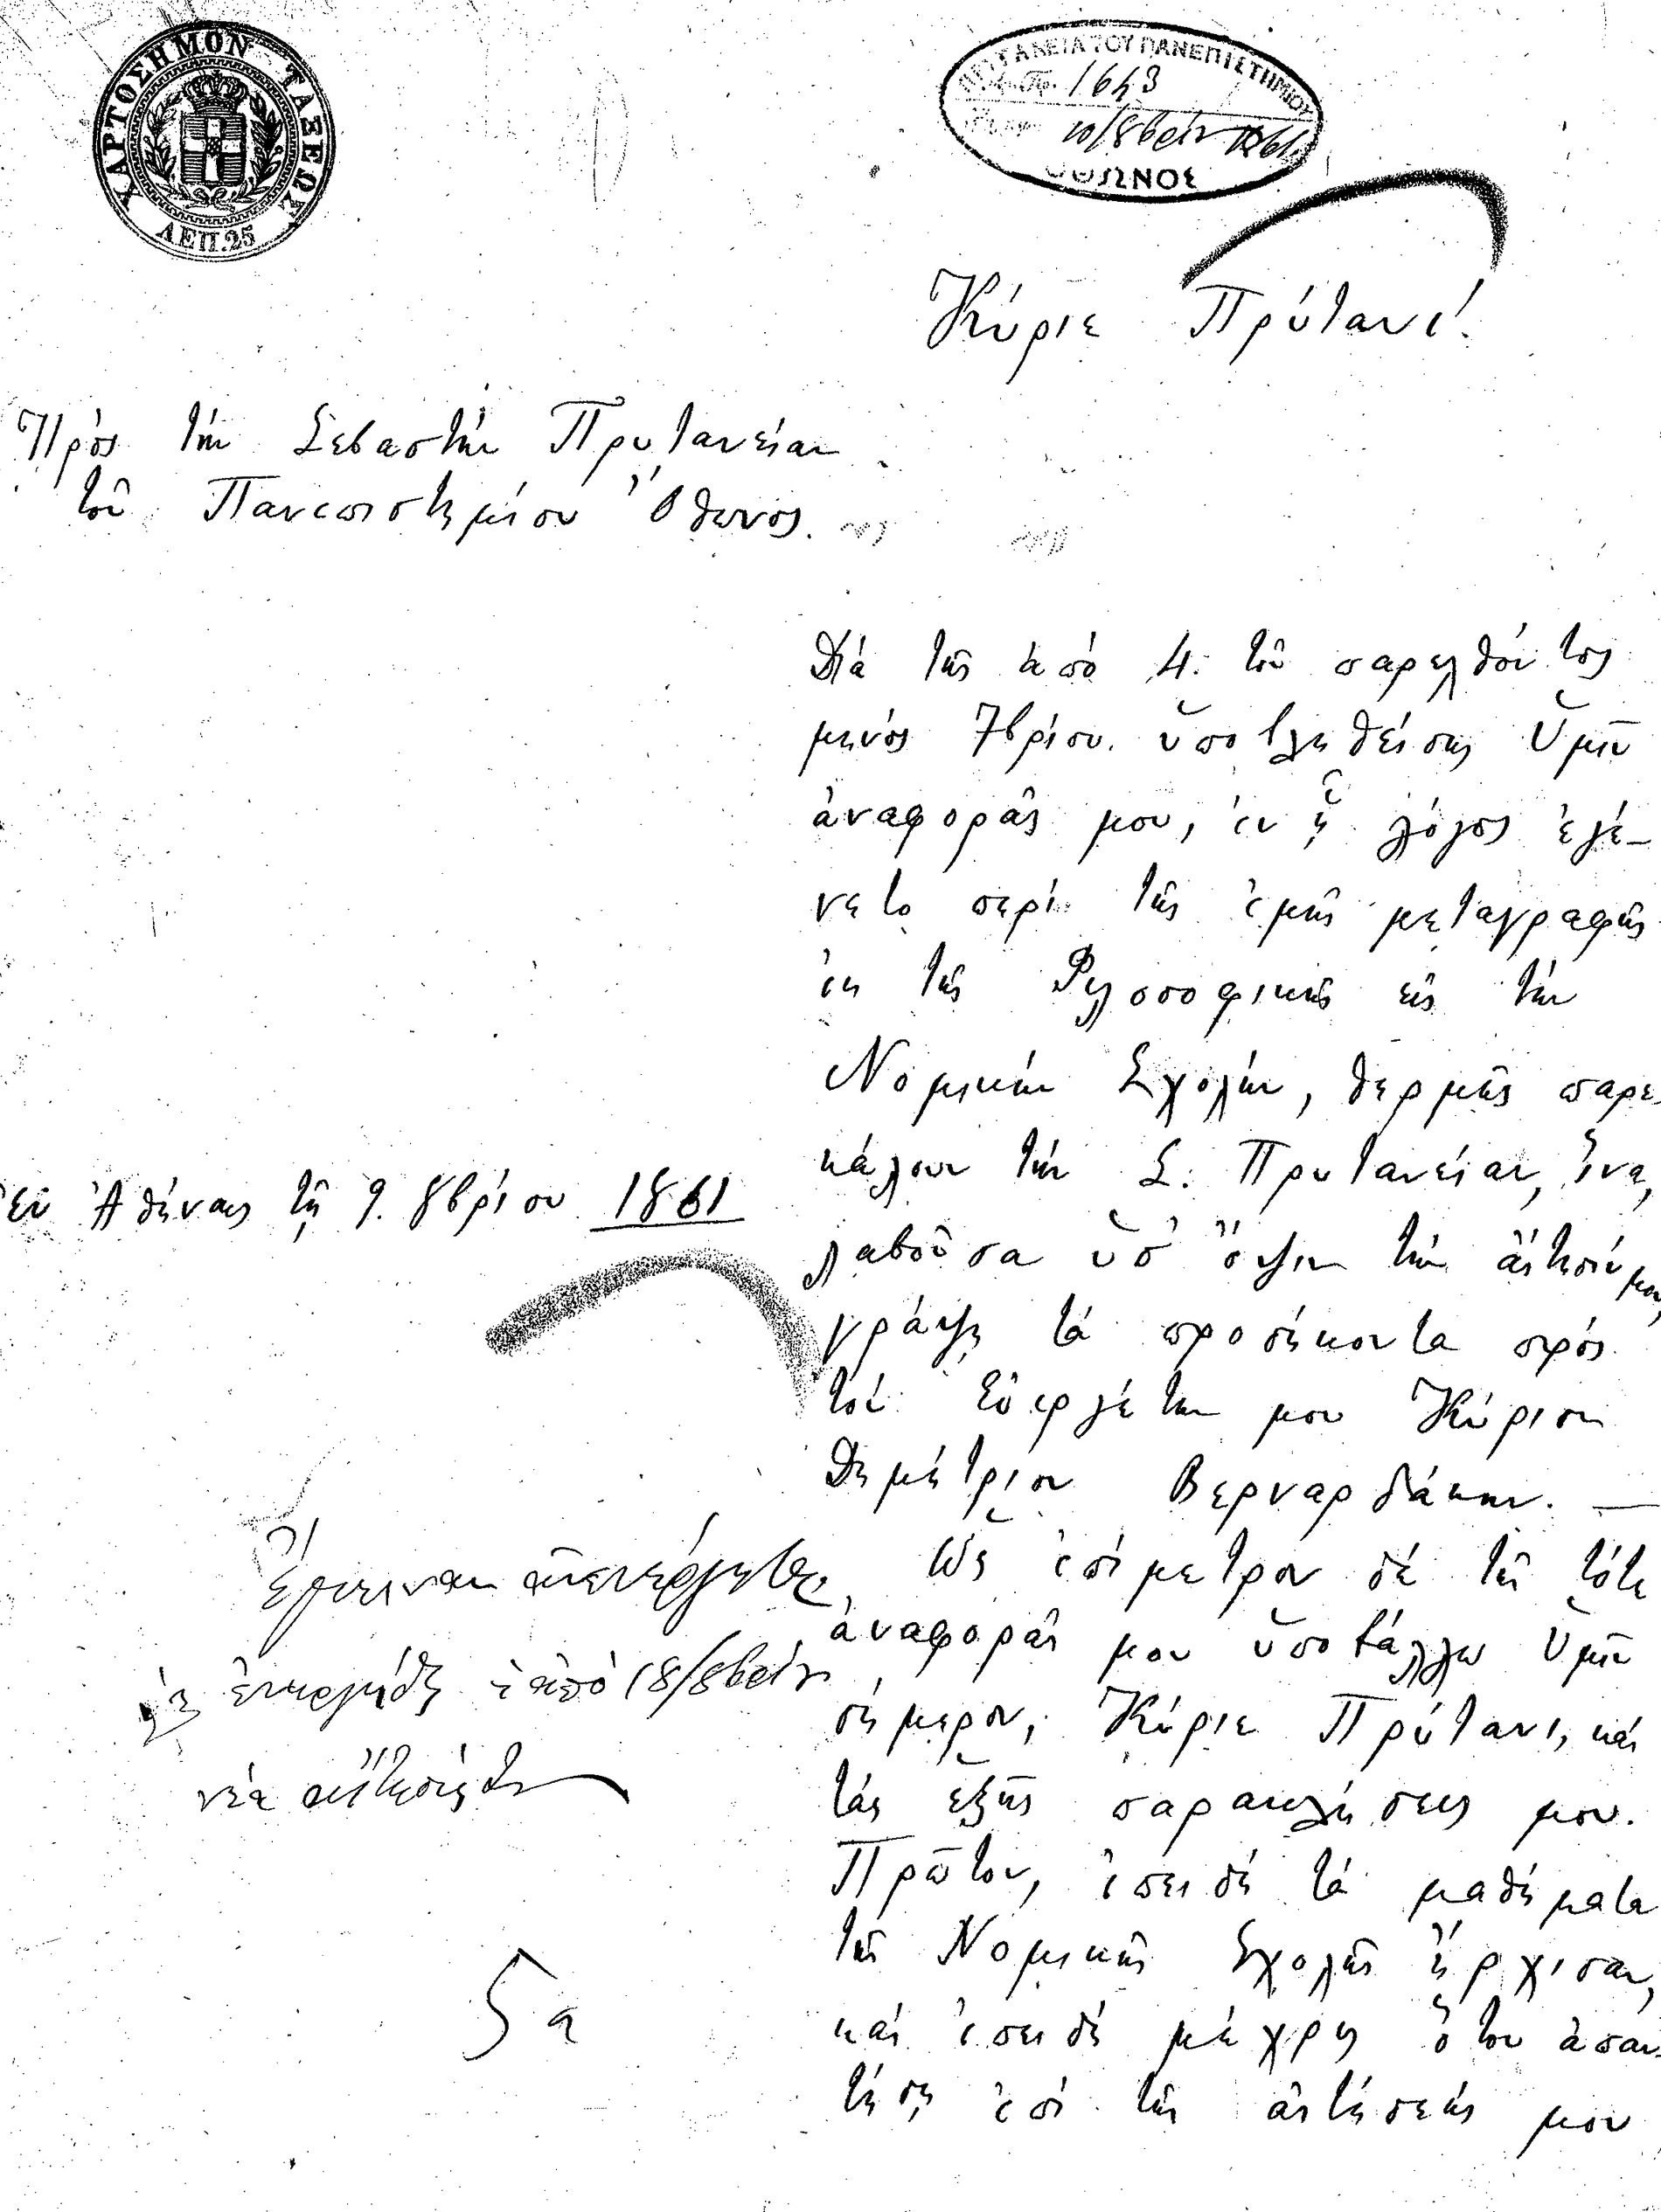 ΧΑΡΤΟΣΗΜΟΝ ΤΑΞΕΩΣ
ΛΕΠ.25
ΠΡΥΤΑΝΕΙΑ ΤΟΥ ΠΑΝΕΠΙΣΤΗΜΙΟΥ
1643
10/8βρίου 1861
ΟΘΩΝΟΣ
Κύριε Πρύτανι!
Πρὸς τὴν Σεβαστὴν Πρυτανείαν
τοῦ Πανεπιστημίου Ὄθωνος.
Διὰ τῆς ἀπὸ 4. τοῦ παρελθόντος
μηνὸς 7βρίου. ὑποβληθείσης Ὑμῖν
ἀναφορᾶς μου, ἐν ᾗ λόγος ἐγέ-
νετο περὶ τῆς ἐμῆς μεταγραφῆς
ἐκ τῆς Φιλοσοφικῆς εἰς τὴν
Νομικὴν Σχολὴν, θερμῶς παρε-
κάλουν τὴν Σ. Πρυτανείαν, ἵνα,
λαβοῦσα ὑπ' ὄψιν τὴν αἴτησίν μου,
γράψῃ τὰ προσήκοντα πρὸς
τὸν Εὐεργέτην μου Κύριον
Δημήτριον Βερναρδάκην. —
Ἐν Ἀθήναις τῇ 9. 8βρίου 1861
Ὡς ἐπίμετρον δὲ τῆς τότε
ἀναφορᾶς μου ὑποβάλλω Ὑμῖν
σήμερον, Κύριε Πρύτανι, καὶ
τὰς ἑξῆς παρακλήσεις μου.
Πρῶτον, ἐπειδὴ τὰ μαθήματα
τῆς Νομικῆς Σχολῆς ἤρχισαν,
καὶ ἐπειδὴ μέχρις ὅτου ἀπαν-
τήσῃ ἐπὶ τῆς αἰτήσεώς μου
ἀπὸ 18/8βρίου
νέα αἴτησις